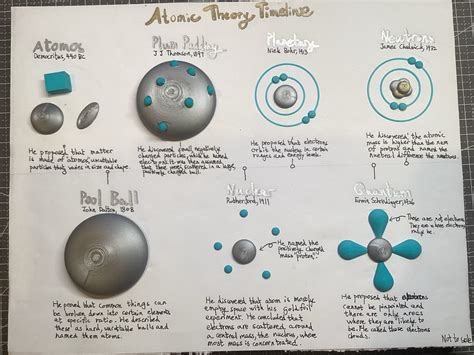 Atomic Theory Timeline
Atomos
Democritus, 440 BC
He proposed that matter
is made of atomos, uncuttable
particles that varies in size and shape.
Plum Pudding
J.J. Thomson, 1897
He discovered small negatively
charged particles, which he named
electrons. It was then assumed that
they were scattered in a large,
positively charged ball.
Planetary
Niels Bohr, 1913
He proposed that electrons
orbit the nucleus in certain
ranges and energy levels.
Neutrons
James Chadwick, 1932
He discovered the atomic
mass is higher than the num
of protons and named the
the difference the neutrons.
Pool Ball
John Dalton, 1808
He proved that common things can
be broken down into certain elements
at specific ratio. He described
these as hard, uncuttable balls and
named them atoms.
Nuclear
Rutherford, 1911
He named the
positively charged
mass "protons".
He discovered that atom is mostly
empty space with his gold foil
experiment. He concluded that
electrons are scattered around
a central mass, the nucleus,
where most mass is concentrated.
Quantum
Erwin Schrödinger, 1926
These are not electrons.
They are where electrons
may be.
He proposed that electrons
cannot be pinpointed and
there are only areas
where they are likely to
be. He called those electrons
clouds.
Not to scale